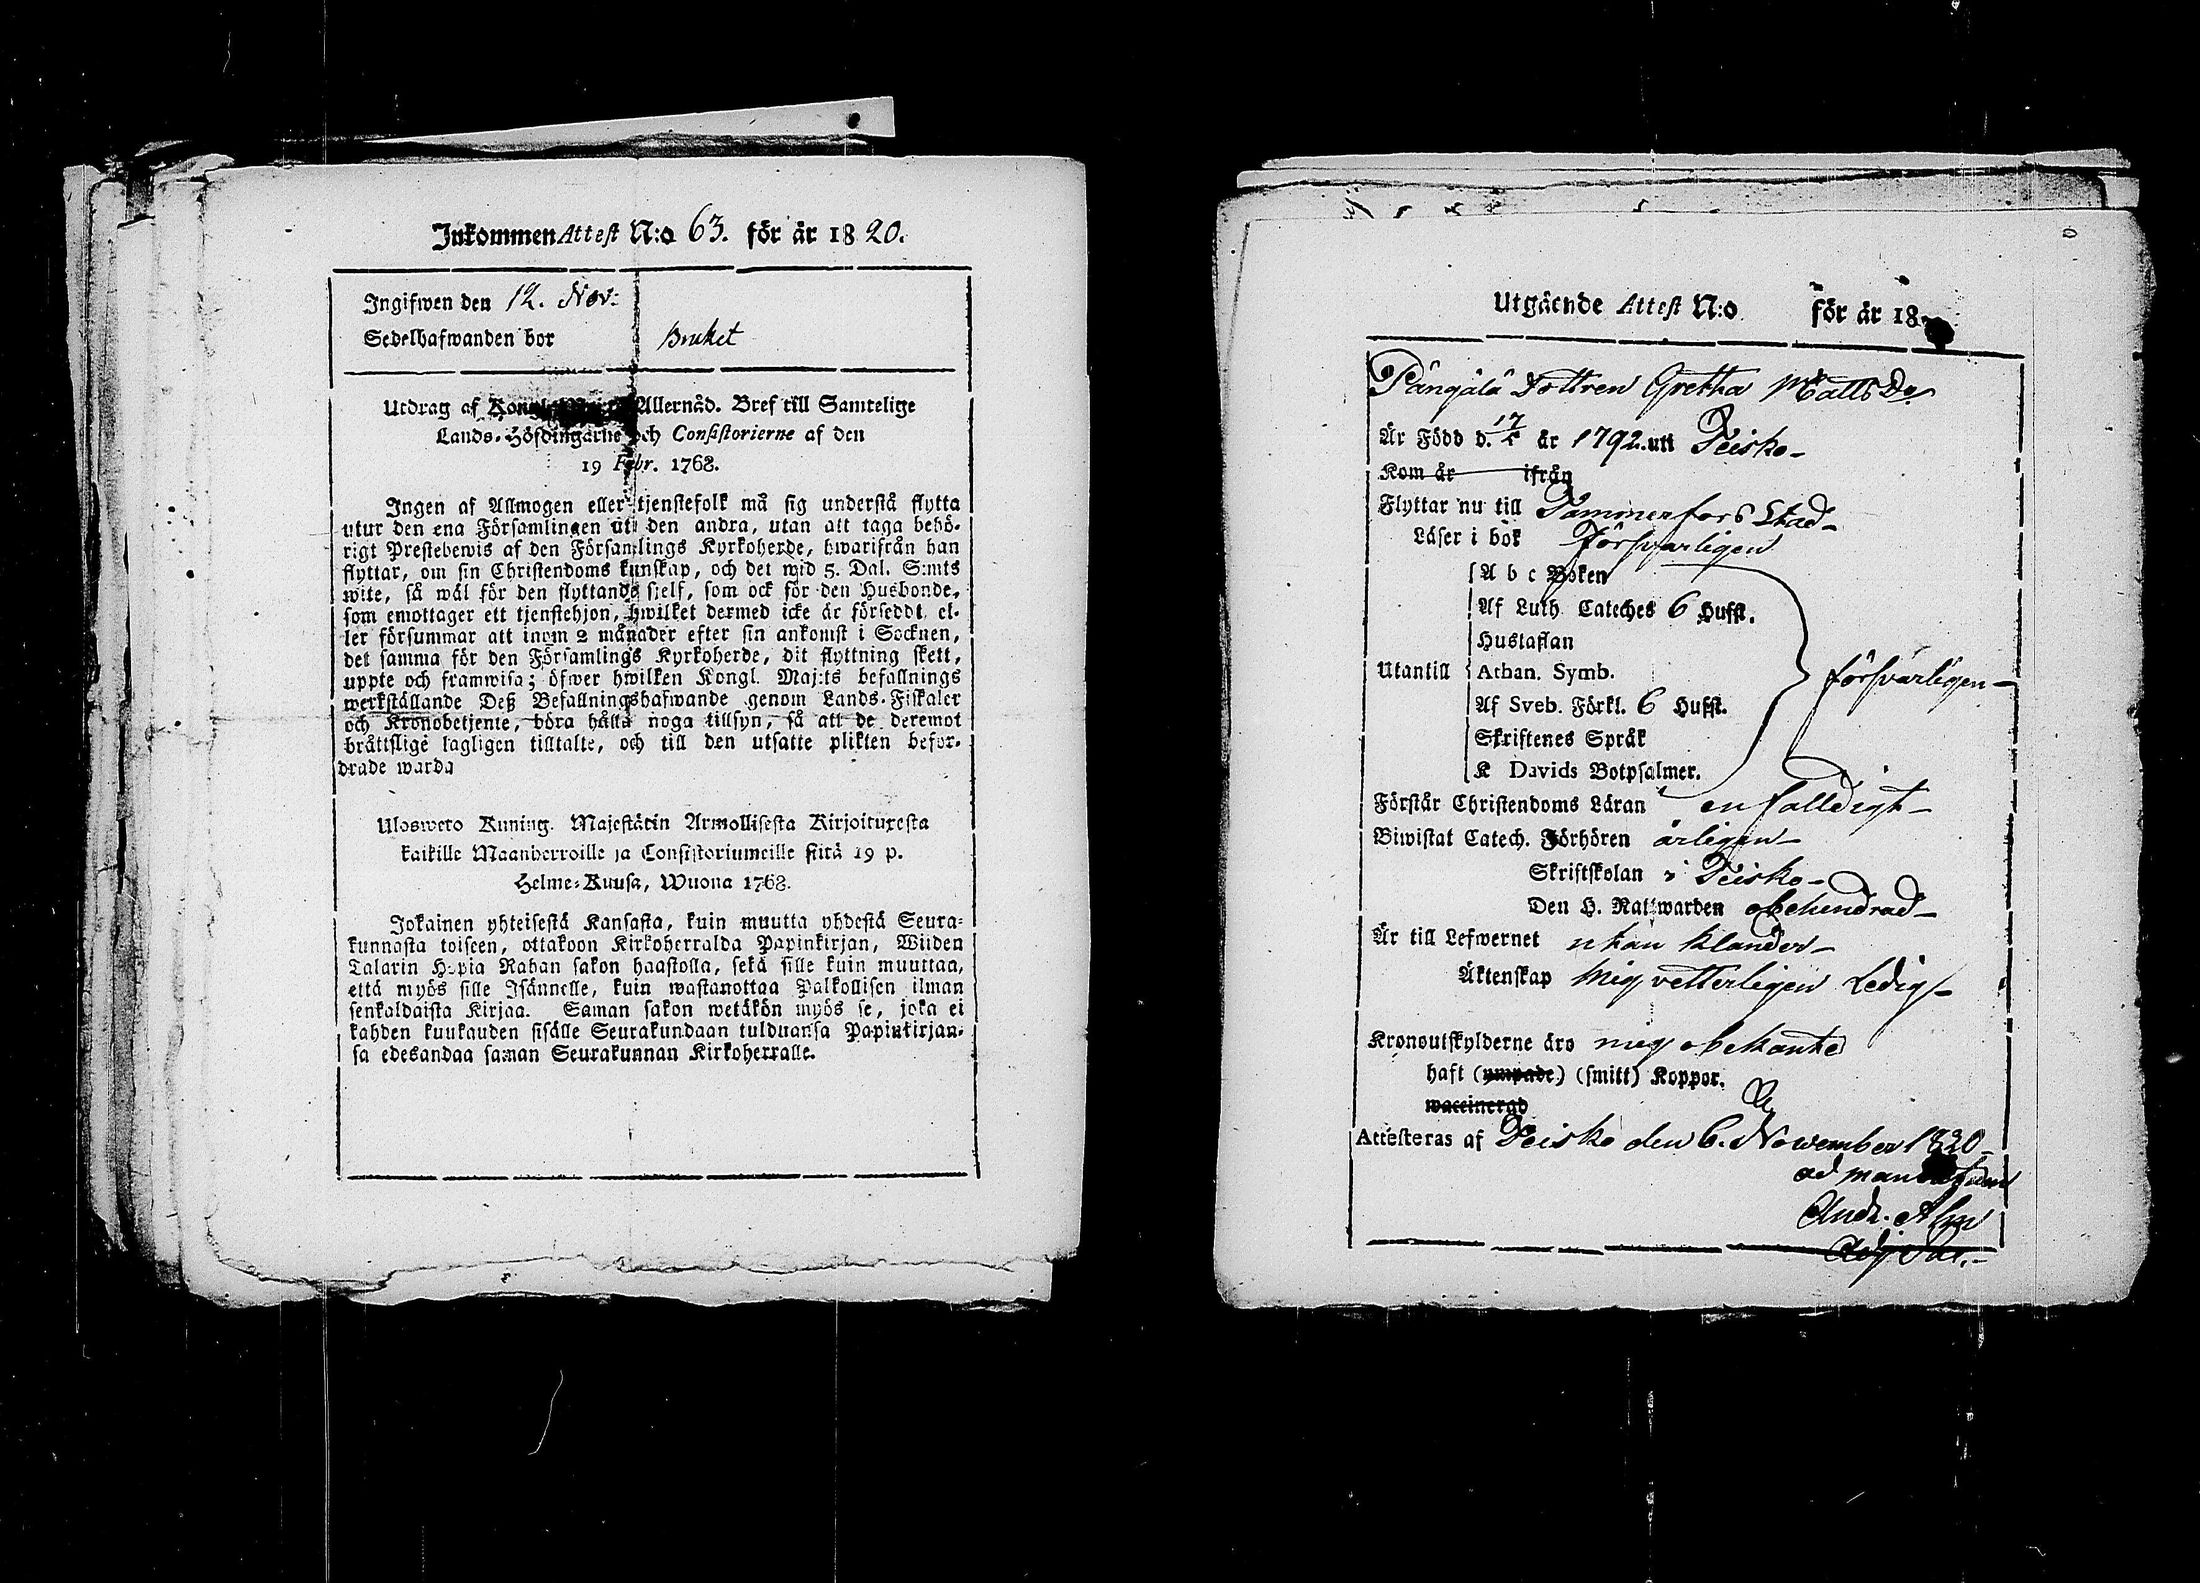 Inkommen Attest N:o 63. för år 1820.
Ingifwen den 12. Nov:
Sedelhafwanden bor Bruket
Utdrag af Kongl. Allernåd. Bref till Samtelige
Lands-Höfdingarne och Consistorierne af den
19 Febr. 1768.
Ingen af Allmogen eller tjenstefolk må sig understå flytta
utur den ena Församlingen uti den andra, utan att taga behö-
rigt Prestebewis af den Församlings Kyrkoherde, hwarifrån han
flyttar, om sin Christendoms kunskap, och det wid 5. Dal. S:mts
wite, så wäl för den flyttande sielf, som ock för den Husbonde,
som emottager ett tjenstehjon, hwilket dermed icke är förseddt, el-
ler försummar att inom 2 månader efter sin ankomst i Socknen,
det samma för den Församlings Kyrkoherde, dit flyttning skett,
uppte och framwisa; öfwer hwilken Kongl. Maj:ts befallnings
werkställande Deß Befallningshafwande genom Lands-Fiskaler
och Kronobetjente, böra hålla noga tillsyn, så att de deremot
bråttslige lagligen tilltalte, och till den utsatte plikten befor-
drade warda
Ulosweto Kuning. Majestätin Armollisesta Kirjoituxesta
kaikille Maanherroille ja Consistoriumeille siitä 19 p.
Helme-Kuusa, Wuona 1768.
Jokainen yhteisestä Kansasta, kuin muutta yhdestä Seura-
kunnasta toiseen, ottakoon Kirkoherralda Papinkirjan, Wiiden
Talarin Hopia Rahan sakon haastolla, sekä sille kuin muuttaa,
että myös sille Isännelle, kuin wastanottaa Palkollisen ilman
senkaldaista Kirjaa. Saman sakon wetäkön myös se, joka ei
kahden kuukauden sisälle Seurakundaan tulduansa Papinkirjan-
sa edesandaa saman Seurakunnan Kirkoherralle.
Utgående Attest N:o för år 18
Pängälä Dottren Gretha Matts Dr
Är Född d. 17/5 år 1792. uti Teisko
Kom år ifrån
Flyttar nu till Tammerfors Stad
Läser i bok försvarligen
A b c Boken
Af Luth. Cateches 6 Hufst.
Hustaflan
Utantill Athan. Symb. försvarligen
Af Sveb. Förkl. 6 Hufst.
Skriftenes Språk
K Davids Botpsalmer.
Förstår Christendoms Läran enfalldigt
Biwistat Catech. Förhören årligen
Skriftskolan i Teisko
Den H. Nattwarden obehindrad
Är till Lefwernet utan klander
Äktenskap Mig vetterligen Ledig
Kronoutskylderne äro mig obekante
haft (ympade) (smitt) Koppor.
waccinerad
Attesteras af Teisko den 6. November 1820
ad mandatum
Andr. Alm
Adj Pac.